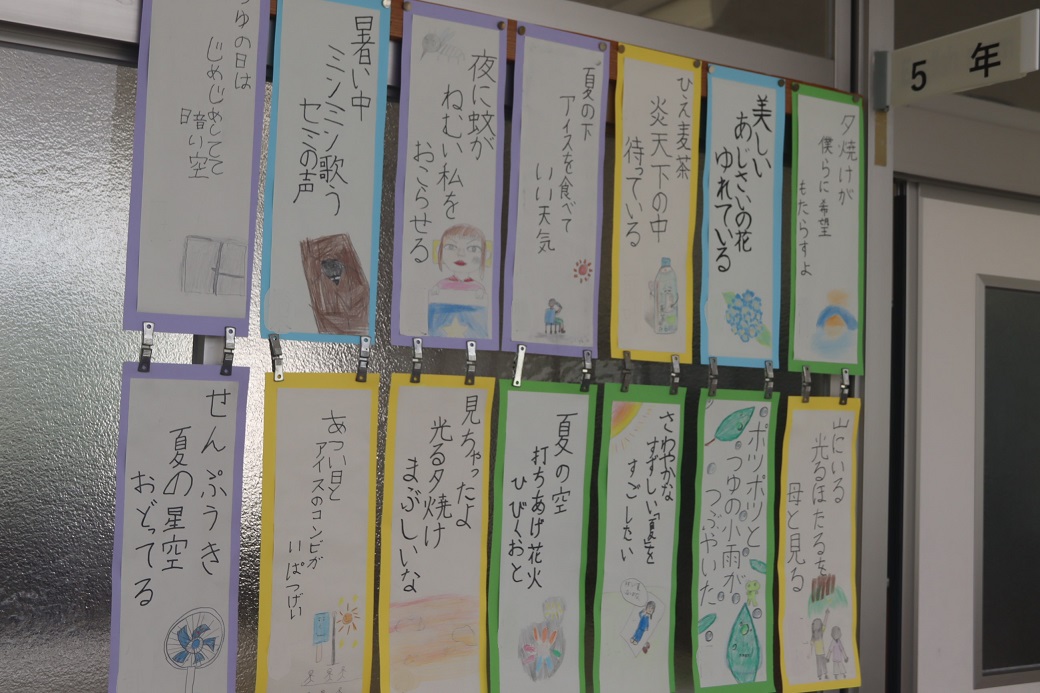 5 年
夕焼けが
僕らに希望
もたらすよ
美しい
あじさいの花
ゆれている
ひえ麦茶
炎天下の中
待っている
夏の下
アイスを食べて
いい天気
夜に蚊が
ねむい私を
おこらせる
暑い中
ミンミン歌う
セミの声
つゆの日は
じめじめしてて
暗い空
山にいる
光るほたるを
母と見る
ポツポツと
つゆの小雨が
つぶやいた
さわやかな
すずしい「夏」を
すごしたい
夏の空
打ちあげ花火
ひびくおと
見ちゃったよ
光る夕焼け
まぶしいな
あつい日と
アイスのコンビが
いぱつげい
せんぷうき
夏の星空
おどってる